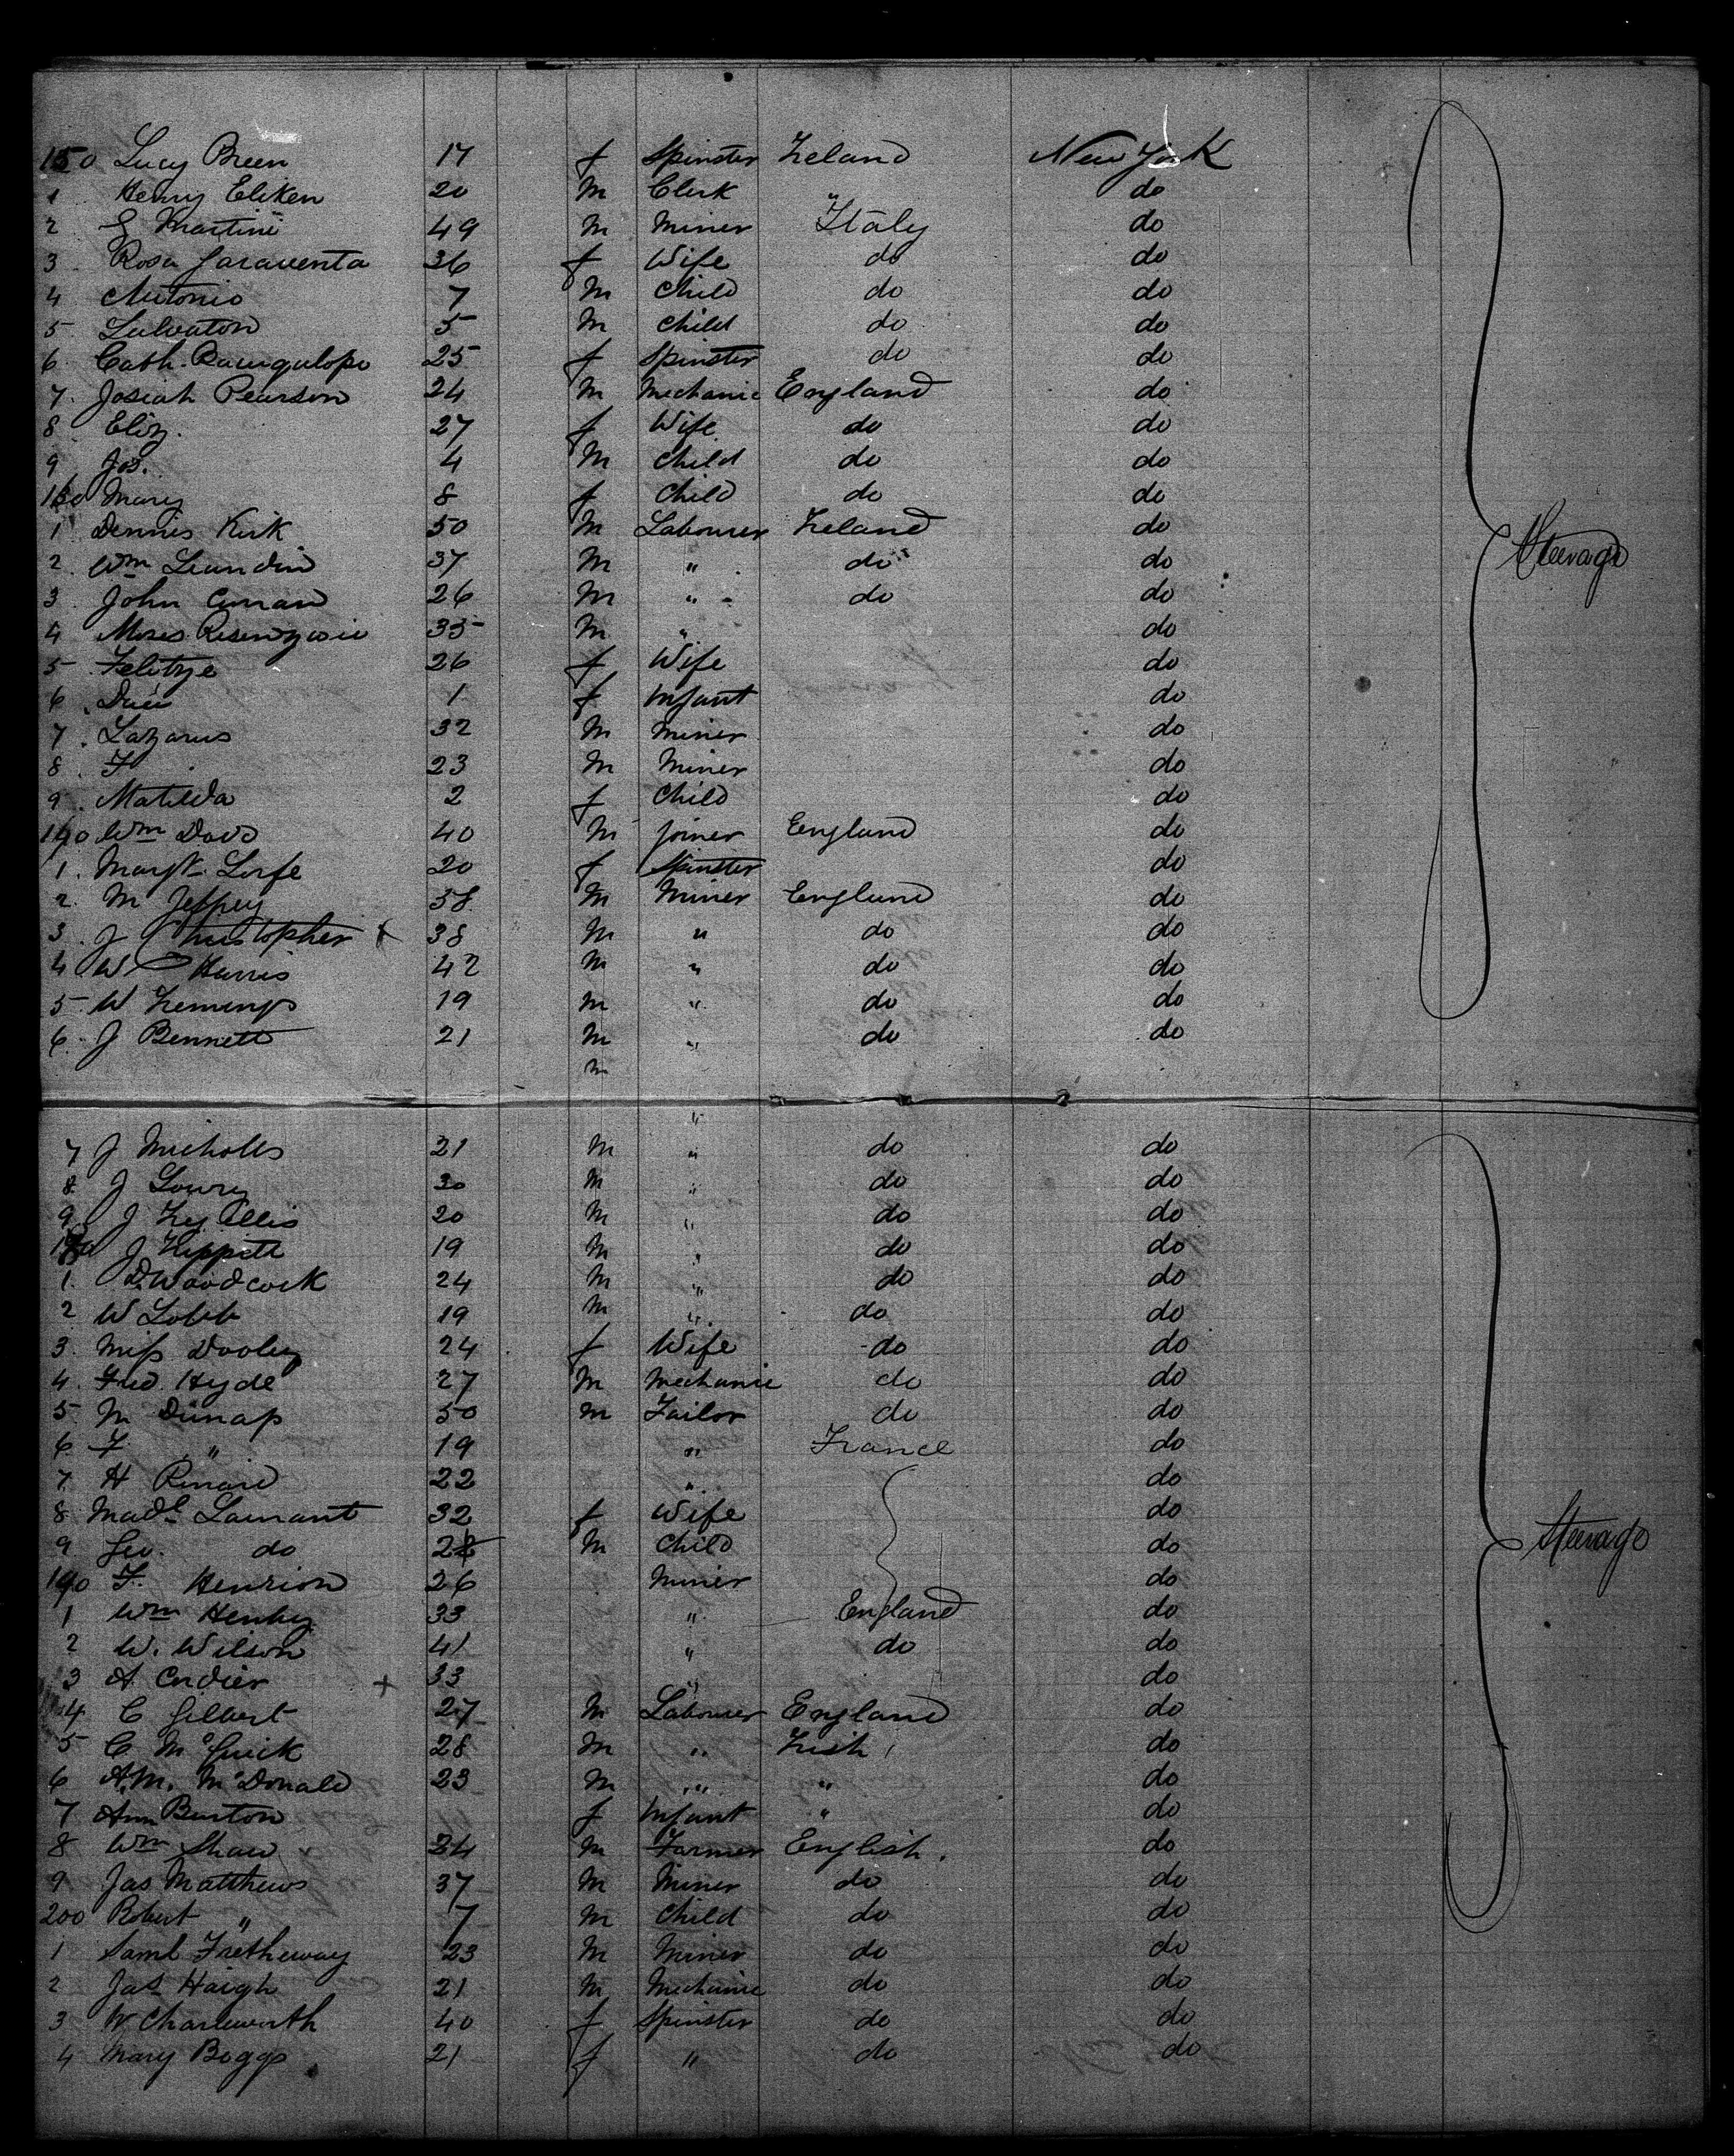 150 Lucy Breen 17 f Spinster Ireland New York
1 Henry Eliken 20 M Clerk " do
2 G Martini 49 M Miner Italy do
3 Rosa Garaventa 26 f Wife do do
4 Antonio 7 M Child do do
5 Salvaton 5 M Child do do
6 Cath. 25 f Spinster do do
7 Josiah Pearson 24 M Mechanic England do
8 Eliz. 27 f Wife do do
9 Jos. 4 M Child do do
160 Mary 8 f Child do do
1 Dennis Kirk 50 M Labourer Ireland do
Steerage
2 Wm 37 M " do do
3 John Curran 26 M " do do
4 Moses 35 M " do
5 Felitze 26 f Wife do
6 1 f Infant do
7 Lazarus 32 M Miner do
8 F 23 M Miner do
9 Matilda 2 f Child do
170 Wm Davd 40 M Joiner England do
1 Margt. Lorfe 20 f Spinster do
2 M Jeffrey 38 M Miner England do
3 J Christopher 38 M " do do
4 W Harris 42 M " do do
5 W 19 M " do do
6 J Bennett 21 M " do do
M
"
7 J Nicholls 21 M " do do
8 J Lowry 30 M " do do
9 J 20 M " do do
180 J 19 M " do do
1 D. Woodcock 24 M " do do
2 W Lobb 19 M " do do
3 Miss Dooley 24 f Wife do do
4 Fred. Hyde 27 M Mechanic do do
5 M Dunap 50 M Tailor do do
6 F " 19 " France do
7 H Renard 22 " do
8 Madl Lamant 32 f Wife do
9 Geo. do 22 M Child do
Steerage
190 F. Henrion 26 Miner do
1 Wm Henby 33 " England do
2 W. Wilson 41 " do do
3 A Cordier + 33 " do
4 C Gilbert 27 M Labourer England do
5 C McGuick 28 M " Irish do
6 A.M. McDonald 23 M " " do
7 Ann Burton f Infant " do
8 Wm Shaw 24 M Farmer English. do
9 Jas Matthews 37 M Miner do do
200 Robert " 7 M Child do do
1 Saml Tretheway 23 M Miner do do
2 Jas Haigh 21 M Mechanic do do
3 W Charlesworth 40 f Spinster do do
4 Mary Boggs 21 f " do do